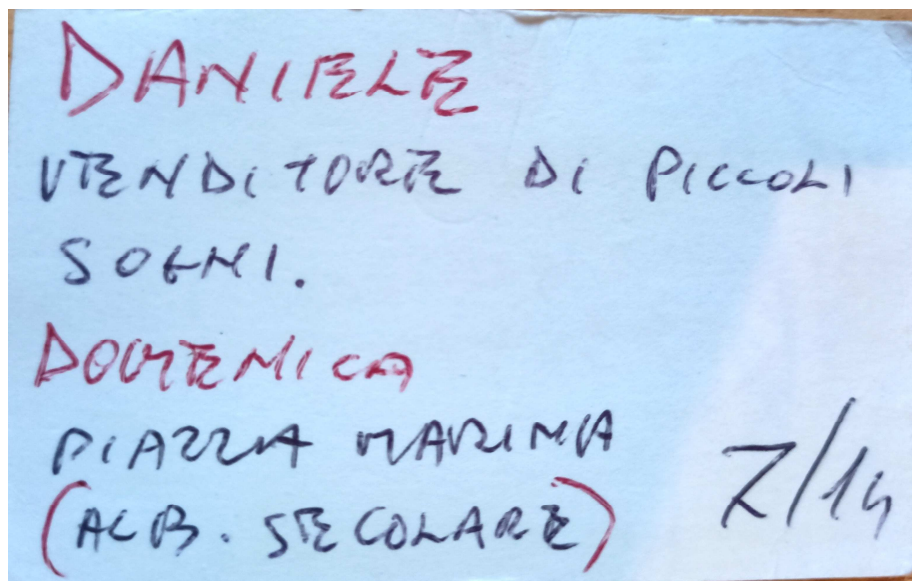 DANIELE
VENDITORE DI PICCOLI
SOGNI.
DOMENICA
PIAZZA MARINA
(ALB. SECOLARE) 7/14